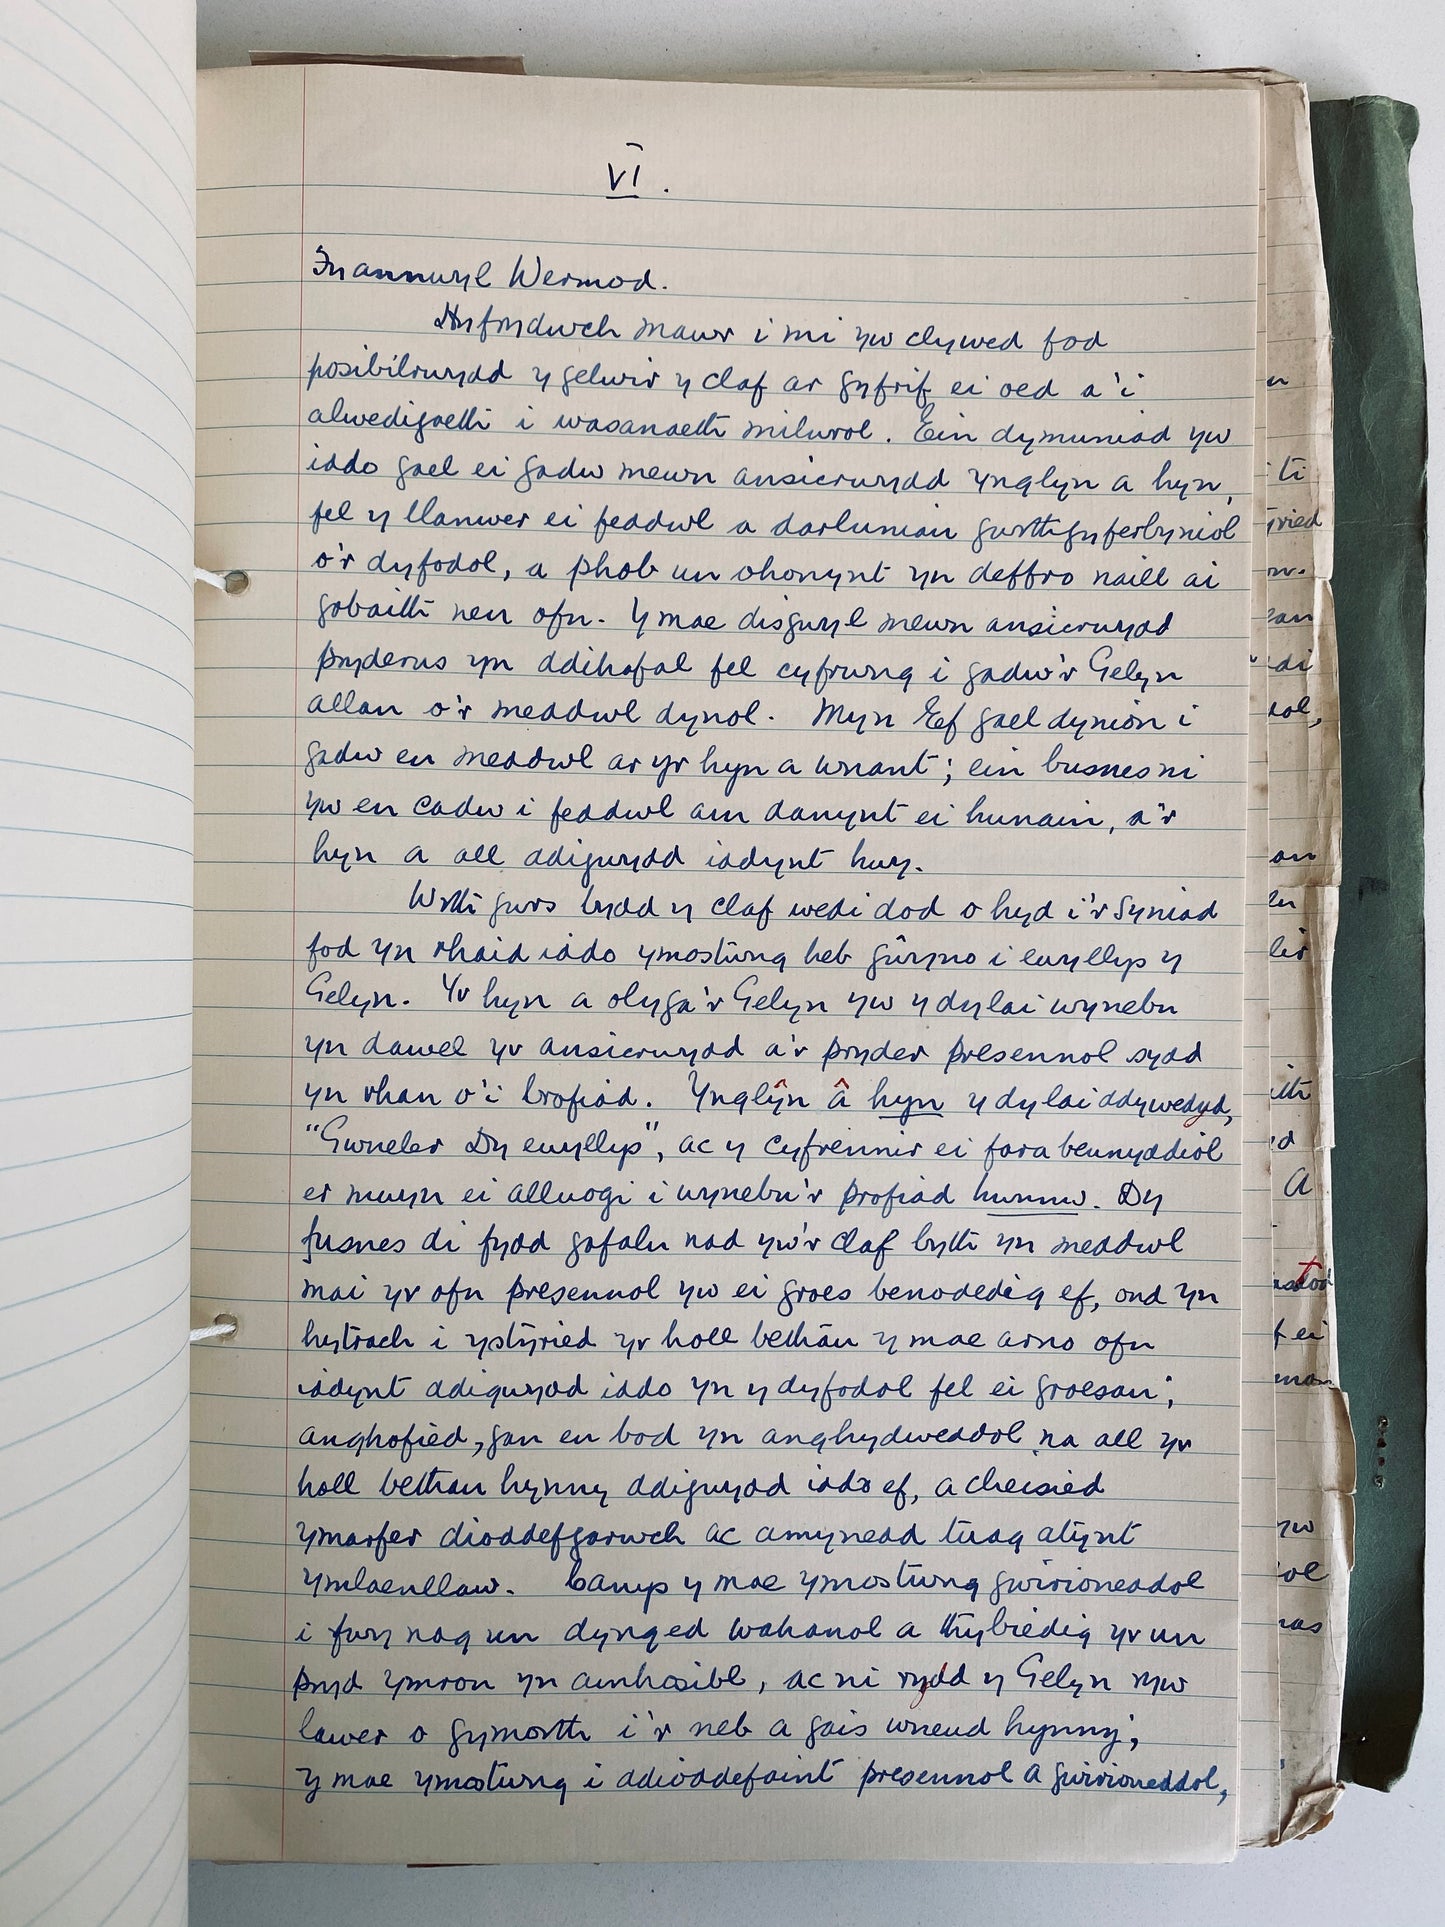 VI.
Fy annwyl Wermod.
Hyfrydwch mawr i mi yw clywed fod
posibilrwydd y gelwir y claf ar gyfrif ei oed a'i
alwedigaeth i wasanaeth milwrol. Ein dymuniad yw
iddo gael ei gadw mewn ansicrwydd ynglyn a hyn,
fel y llanwer ei feddwl a darluniau gwrthgyferbyniol
o'r dyfodol, a phob un ohonynt yn deffro naill ai
gobaith neu ofn. Y mae disgwyl mewn ansicrwydd
pryderus yn ddihafal fel cyfrwng i gadw'r Gelyn
allan o'r meddwl dynol. Myn Ef gael dynion i
gadw eu meddwl ar yr hyn a wnant; ein busnes ni
yw eu cadw i feddwl am danynt ei hunain, a'r
hyn a all ddigwydd iddynt hwy.
Wrth gwrs bydd y claf wedi dod o hyd i'r syniad
fod yn rhaid iddo ymostwng heb gŵyno i ewyllys y
Gelyn. Yr hyn a olyga'r Gelyn yw y dylai wynebu
yn dawel yr ansicrwydd a'r pryder presennol sydd
yn rhan o'i brofiad. Ynglŷn â hyn y dylai ddywedyd,
"Gwneler Dy ewyllys", ac y cyfrennir ei fara beunyddiol
er mwyn ei alluogi i wynebu'r profiad hwnnw. Dy
fusnes di fydd gofalu nad yw'r claf byth yn meddwl
mai yr ofn presennol yw ei groes benodedig ef, ond yn
hytrach i ystyried yr holl bethau y mae arno ofn
iddynt ddigwydd iddo yn y dyfodol fel ei groesau;
anghofied, gan eu bod yn anghydweddol na all yr
holl bethau hynny ddigwydd iddo ef, a cheisied
ymarfer dioddefgarwch ac amynedd tuag atynt
ymlaenllaw. Camp y mae ymostwng gwirioneddol
i fwy nag un dynged wahanol a thybiedig yr un
pryd ymron yn amhosibl, ac ni rydd y Gelyn ryw
lawer o gymorth i'r neb a gais wneud hynny;
y mae ymostwng i ddioddefaint presennol a gwirioneddol,